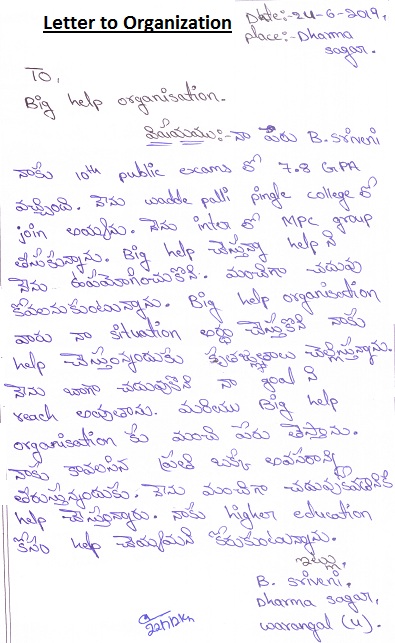 Letter to Organization
Date:-24-6-2019,
place:-Dharma
sagar.
To,
Big help organisation.
విషయము:- నా పేరు B. Sriveni
నాకు 10th public exams లో 7.8 GPA
వచ్చింది. నేను wadde palli pingle college లో
join అయ్యాను. నేను inter లో MPC group
తీసుకున్నాను. Big help చేస్తున్న help ని
నేను ఉపయోగించుకొని. మంచిగా చదువు
కోవాలనుకుంటున్నాను. Big help organisation
వారు నా situation అర్థం చేసుకొని నాకు
help చేస్తున్నందుకు కృతజ్ఞతలు చెల్లిస్తున్నాను.
నేను బాగా చదువుకొని నా goal ని
reach అవుతాను. మరియు Big help
organisation కు మంచి పేరు తెస్తాను.
నాకు కావలసిన ప్రతి ఒక్క అవసరాన్ని
తీరుస్తున్నందుకు. నేను మంచిగా చదువుకోవడానికి
help చేస్తున్నారు. నాకు higher education
కోసం help చెయ్యమని కోరుకుంటున్నాను.
ఇట్లు,
B. Sriveni,
Dharma sagar,
warangal (U).